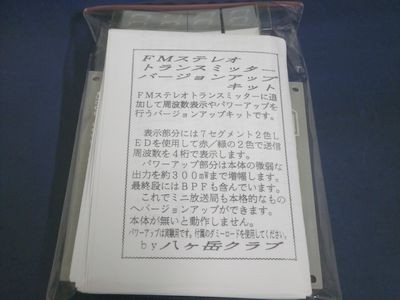 FMステレオ
トランスミッター
バージョンアップ
キット
FMステレオトランスミッターに追
加して周波数表示やパワーアップを
行うバージョンアップキットです。
表示部分には7セグメント2色L
EDを使用して赤/緑の2色で送信
周波数を4桁で表示します。
パワーアップ部分は本体の微弱な
出力を約300mWまで増幅します。
最終段にはBPFも含んでいます。
これでミニ放送局も本格的なもの
へバージョンアップができます。
本体が無いと動作しません。
パワーアップは実験用です。付属のダミーロードを使用してください。
by八ヶ岳クラブ